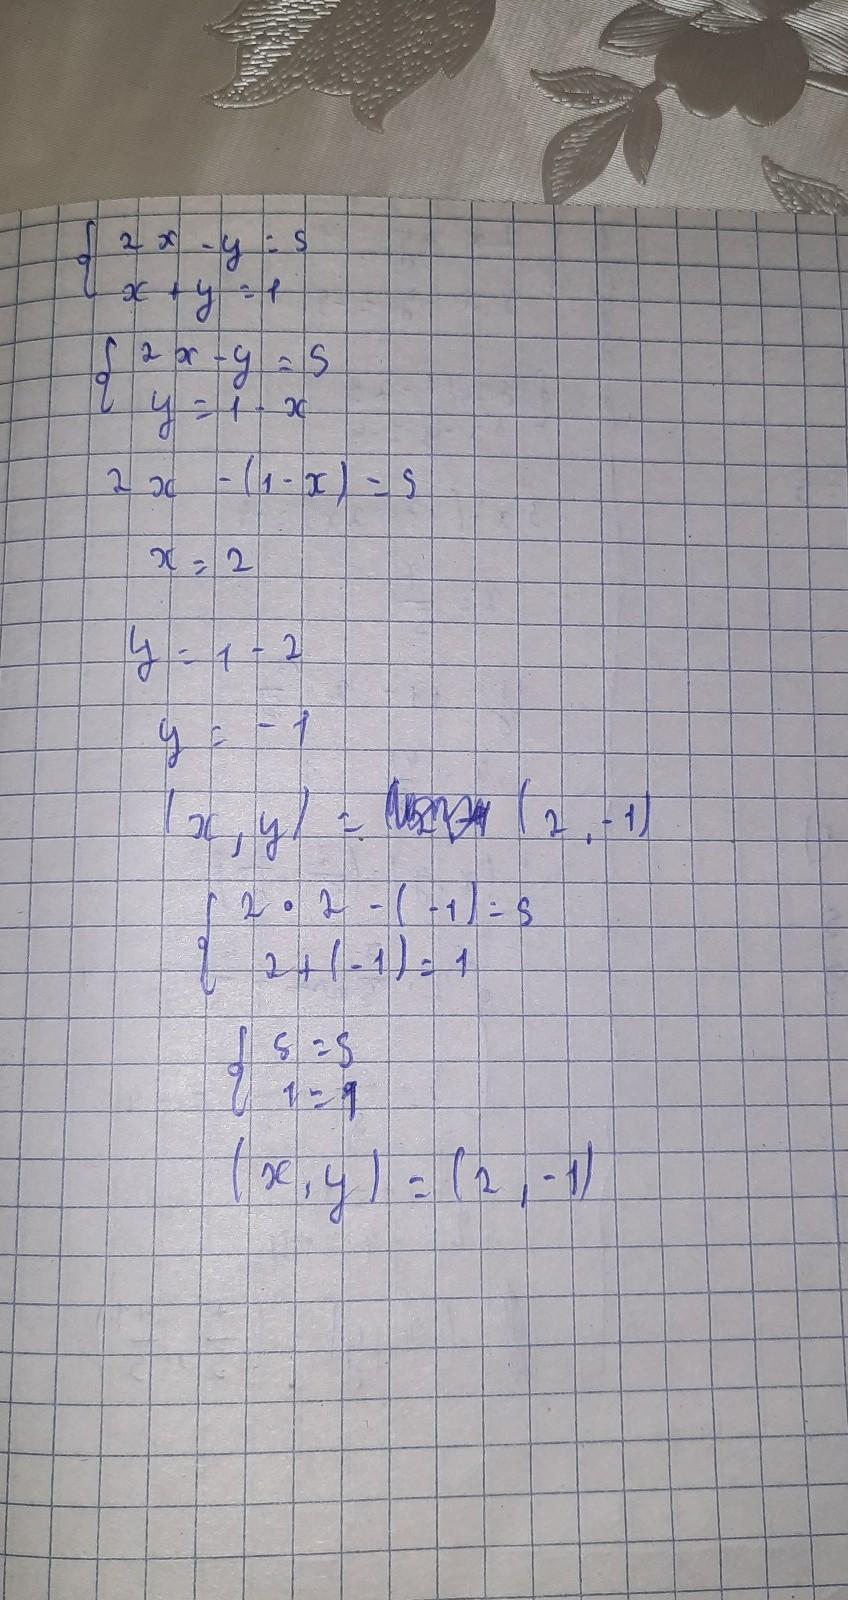 { 2x - y = 5
x + y = 1
{ 2x - y = 5
y = 1 - x
2x - (1 - x) = 5
x = 2
y = 1 - 2
y = - 1
(x, y) = (2, -1)
{ 2 • 2 - (-1) = 5
2 + (-1) = 1
{ 5 = 5
1 = 1
(x, y) = (2, -1)